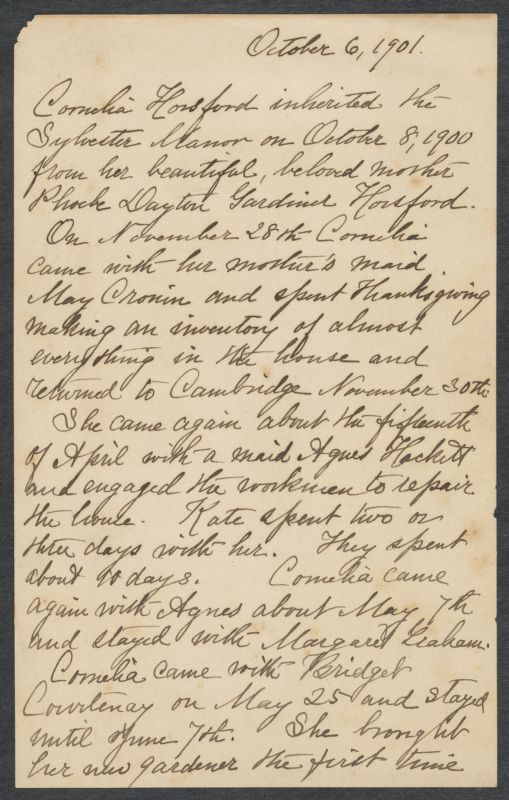 October 6, 1901.
Cornelia Horsford inherited the
Sylvester Manor on October 8, 1900
from her beautiful, beloved mother
Phoebe Dayton Gardiner Horsford.
On November 28th Cornelia
came with her mother's maid
May Cronin and spent Thanksgiving
making an inventory of almost
everything in the house and
returned to Cambridge November 30th.
She came again about the fifteenth
of April with a maid Agnes Hackett
and engaged the workmen to repair
the house. Kate spent two or
three days with her. They spent
about 10 days. Cornelia came
again with Agnes about May 7th
and stayed with Margaret Graham.
Cornelia came with Bridget
Courtenay on May 25 and stayed
until June 7th. She brought
her new gardener the first time